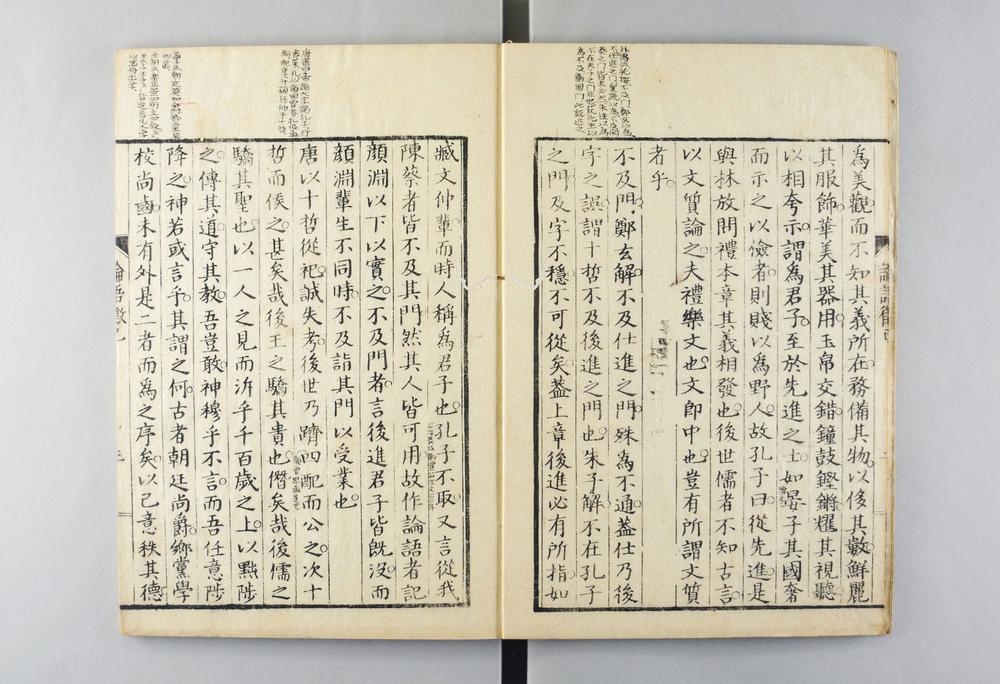 為美觀而不知其義所在務備其物以侈其數鮮麗
其服飾華美其器用玉帛交錯鐘鼓鏗鏘耀其視聽
以相夸示謂為君子至於先進之士如晏子其國奢
而示之以儉者則賤以為野人故孔子曰從先進是
與林放問禮本章其義相發也後世儒者不知古言
以文質論之夫禮樂文也文即中也豈有所謂文質
者乎
不及門鄭玄解不及仕進之門殊為不通蓋仕乃後
字之誤謂十哲不及後進之門也朱子解不在孔子
之門及字不穩不可從矣蓋上章後進必有所指如
臧文仲輩而時人稱為君子也孔子不取又言從我
陳蔡者皆不及其門然其人皆可用故作論語者記
顏淵以下以實之不及門者言後進君子皆既沒而
顏淵輩生不同時不及詣其門以受業也
唐以十哲從祀誠失考後世乃躋四配而公之次十
哲而侯之甚矣哉後王之驕其貴也僭矣哉後儒之
驕其聖也以一人之見而泝乎千百歲之上以黜陟
之傳其道守其教吾豈敢神穆乎不言而吾任意陟
降之神若或言乎其謂之何古者朝廷尚爵鄉黨學
校尚齒未有外是二者而為之序矣以己意秩其德